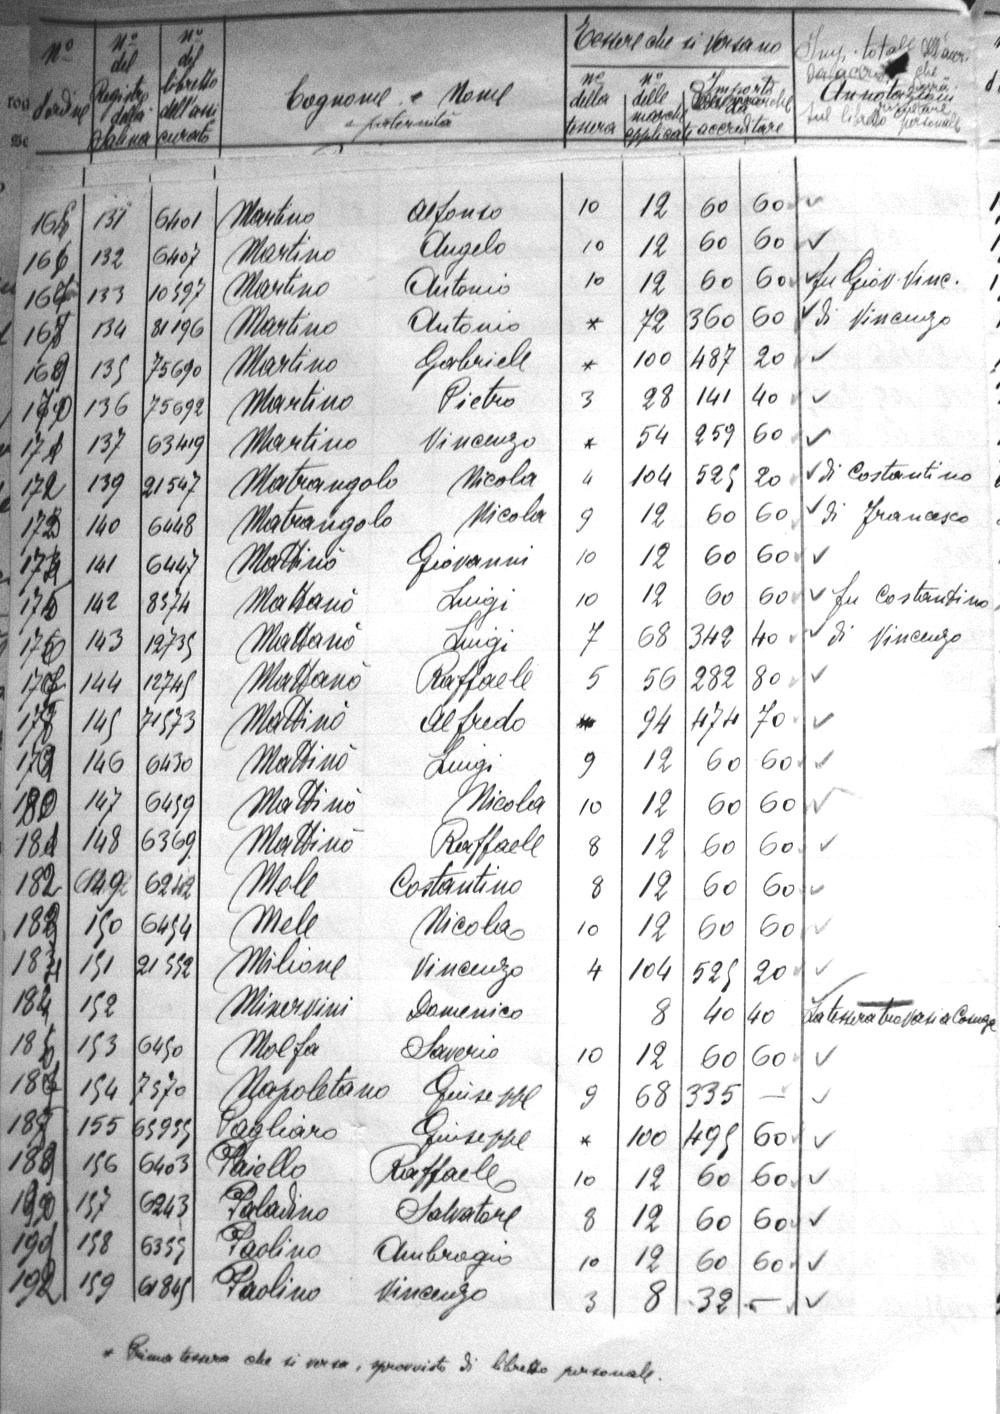 Nº d'ordine
Nº del Registro della Salina
Nº del libretto dell'assicurato
Cognome e Nome
e paternità
Tessere che si versano
Nº della tessera
Nº delle marche applicate
Importo accreditare
Annotazioni
Imp. totale
sul libretto personale
131 6401 Martino Alfonso 10 12 60 60 ✓
166 132 6407 Martino Angelo 10 12 60 60 ✓
167 133 10397 Martino Antonio 10 12 60 60 ✓ fu Giov. Vinc.
168 134 81196 Martino Antonio * 72 360 60 ✓ di Vincenzo
169 135 75690 Martino Gabriele * 100 487 20 ✓
170 136 75692 Martino Pietro 3 28 141 40 ✓
171 137 63419 Martino Vincenzo * 54 259 60 ✓
172 139 21547 Matrangolo Nicola 4 104 525 20 ✓ di Costantino
173 140 6448 Matrangolo Nicola 9 12 60 60 ✓ di Francesco
174 141 6447 Mattinò Giovanni 10 12 60 60 ✓
175 142 8374 Mattanò Luigi 10 12 60 60 ✓ fu Costantino
176 143 12735 Mattanò Luigi 7 68 342 40 ✓ di Vincenzo
144 12745 Mattanò Raffaele 5 56 282 80 ✓
178 145 71573 Mattinò Alfredo * 94 474 70 ✓
179 146 6430 Mattinò Luigi 9 12 60 60 ✓
180 147 6459 Mattinò Nicola 10 12 60 60 ✓
181 148 6369 Mattinò Raffaele 8 12 60 60 ✓
182 149 6242 Mele Costantino 8 12 60 60 ✓
183 150 6454 Mele Nicola 10 12 60 60 ✓
151 21552 Milione Vincenzo 4 104 525 20 ✓
152 Minervini Domenico 8 40 40 La tessera trovasi a Cosenza
153 6450 Molfa Saverio 10 12 60 60 ✓
154 7370 Napoletano Giuseppe 9 68 335 — ✓
155 65955 Pagliaro Giuseppe * 100 495 60 ✓
156 6403 Paiello Raffaele 10 12 60 60 ✓
190 157 6243 Paladino Salvatore 8 12 60 60 ✓
191 158 6355 Paolino Ambrogio 10 12 60 60 ✓
192 159 61845 Paolino Vincenzo 3 8 32 — ✓
* Prima tessera che si versa, sprovvisto di libretto personale.